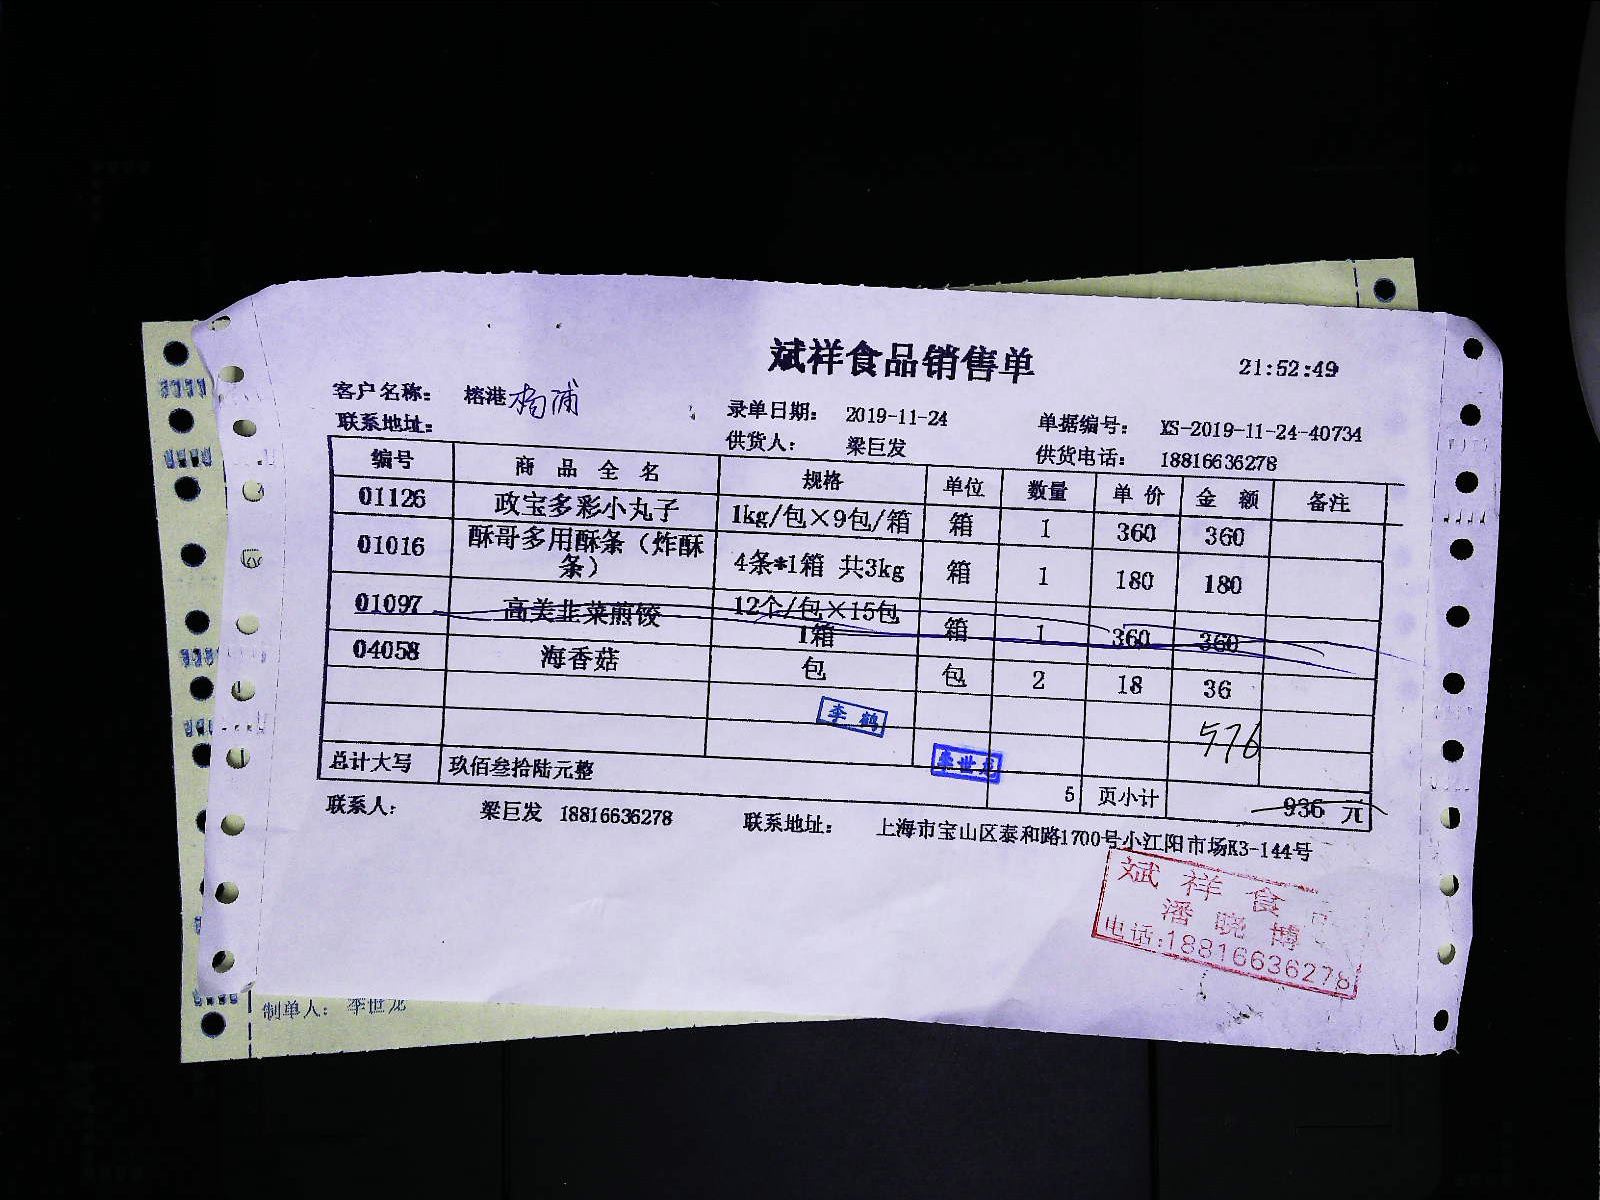 斌祥食品销售单
21:52:49
客户名称： 榕港杨浦 录单日期： 2019-11-24 单据编号： XS-2019-11-24-40734
联系地址： 供货人： 梁巨发 供货电话： 18816636278
编号 商品全名 规格 单位 数量 单价 金额 备注
01126 政宝多彩小丸子 1kg/包×9包/箱 箱 1 360 360
01016 酥哥多用酥条（炸酥条） 4条*1箱 共3kg 箱 1 180 180
01097 高美韭菜煎饺 12个/包×15包1箱 箱 1 360 360
04058 海香菇 包 包 2 18 36
李鹤
576
李世龙
总计大写 玖佰叁拾陆元整
5 页小计 936 元
联系人： 梁巨发 18816636278 联系地址： 上海市宝山区泰和路1700号小江阳市场K3-144号
斌祥食
潘晓博
电话:18816636278
制单人： 李世龙